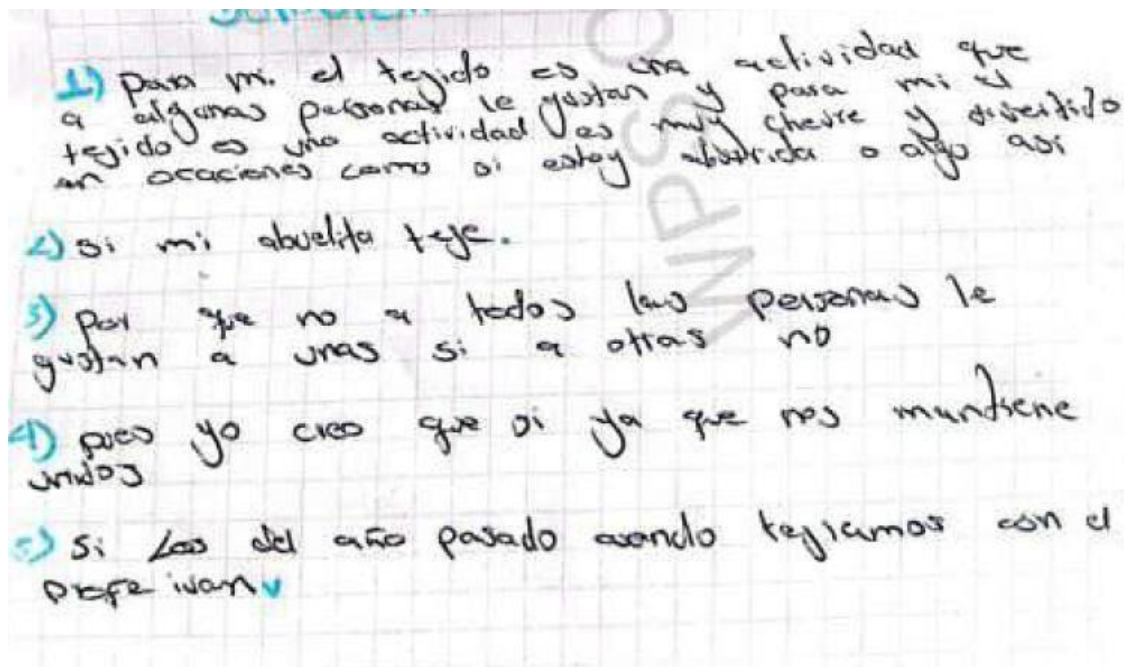 1) para mi el tejido es una actividad que
a algunas personas le gustan y para mi el
tejido es una actividad es muy chevre y divertido
en ocaciones como si estoy aburrida o algo asi
2) si mi abuelita teje.
3) por que no a todos las personas le
gustan a unas si a otras no
4) pues yo creo que si ya que nos mantiene
unidos
5) Si Los del año pasado cuando tejiamos con el
profe ivan